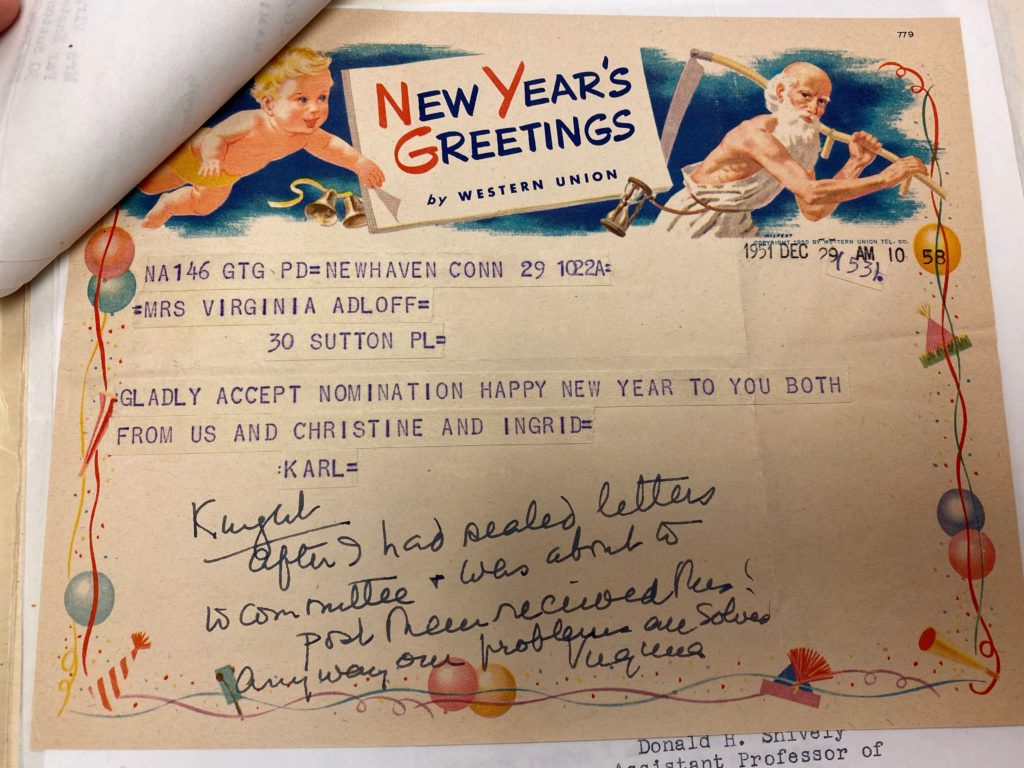 779
NEW YEAR'S
GREETINGS
by WESTERN UNION
HILPERT
COPYRIGHT 1950 BY WESTERN UNION TEL. CO.
1951 DEC 29 AM 10 58
NA146 GTG PD=NEWHAVEN CONN 29 1022A=
=MRS VIRGINIA ADLOFF=
30 SUTTON PL=
:GLADLY ACCEPT NOMINATION HAPPY NEW YEAR TO YOU BOTH
FROM US AND CHRISTINE AND INGRID=
:KARL=
after I had sealed letters
to committee + was about to
post them received this!
Anyway our problems are solved
Donald H. Shively
Assistant Professor of